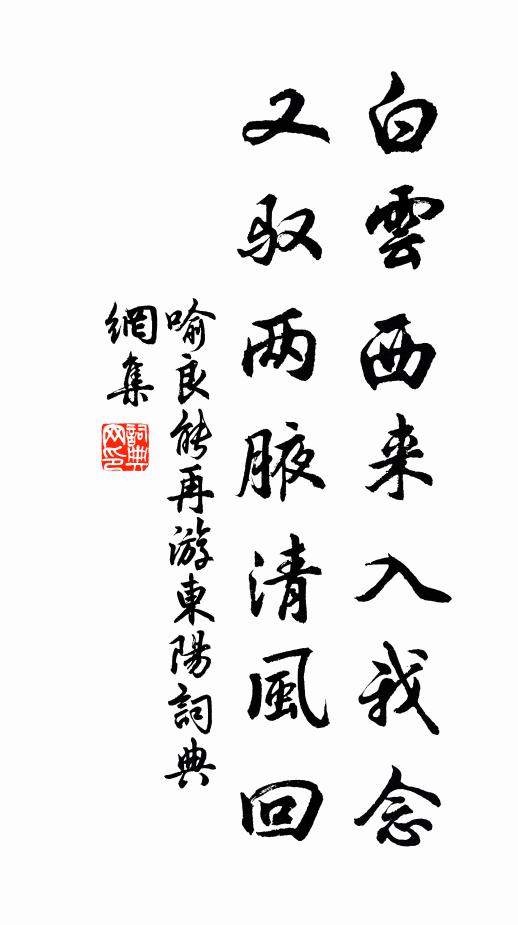 白雲西来入我念
又馭两腋清風回
喻良能再游東陽詞典
網集
詞典
网印